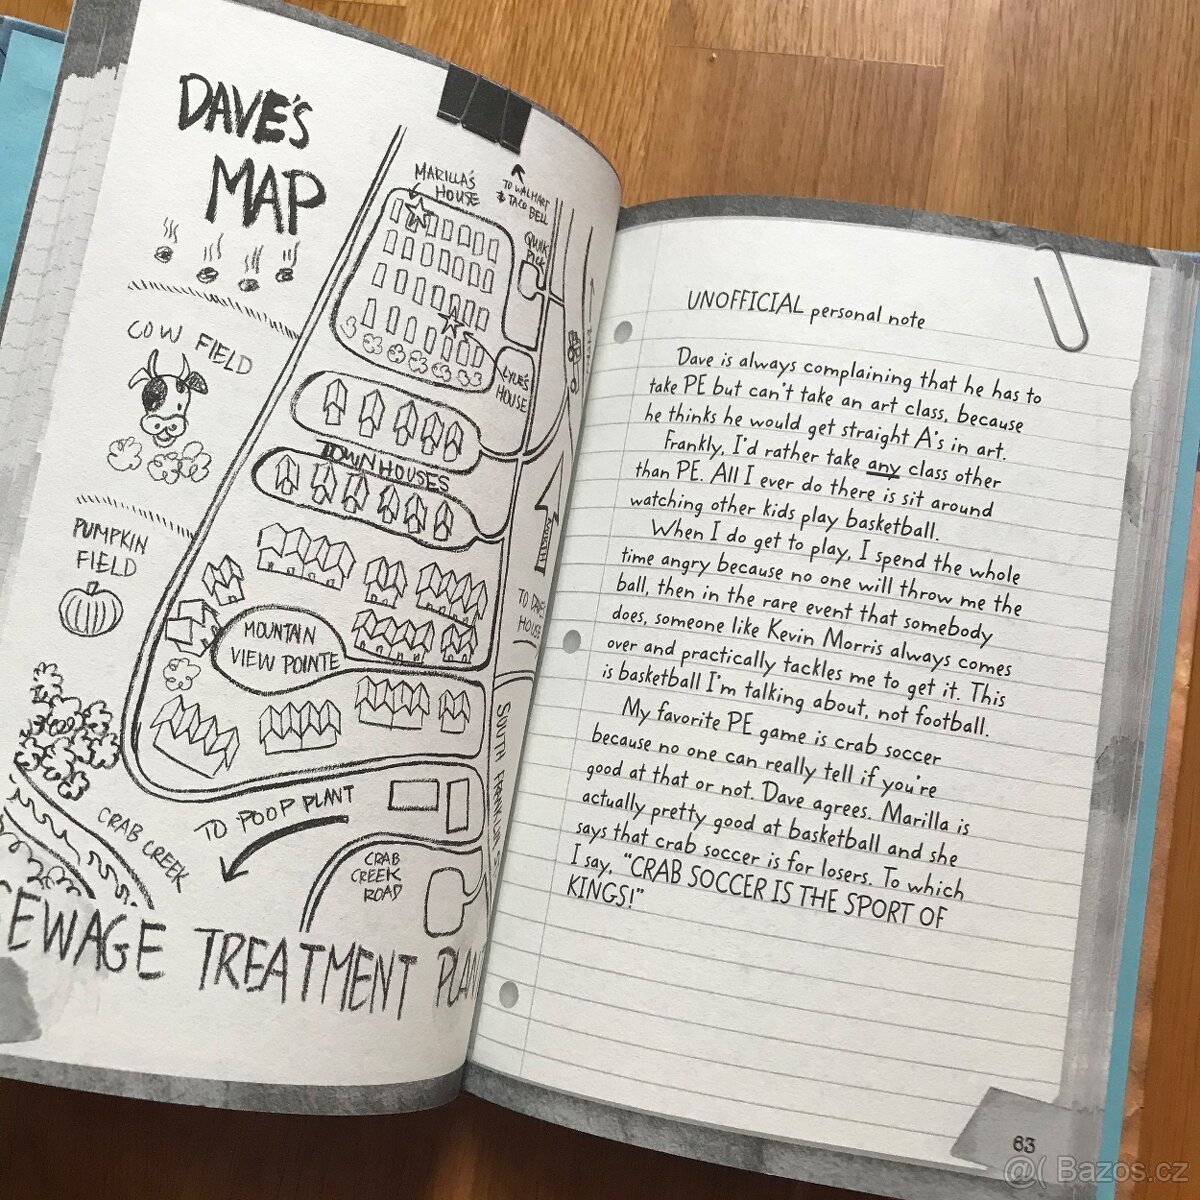 DAVE'S
MAP
MARILLA'S
HOUSE
TO WALMART
& TACO BELL
QUIK
PICK
COW FIELD
LYLE'S
HOUSE
TOWNHOUSES
PUMPKIN
FIELD
TO DAVE'S
HOUSE
MOUNTAIN
VIEW POINTE
SOUTH FRANKLIN
TO POOP PLANT
CRAB CREEK
CRAB
CREEK
ROAD
EWAGE TREATMENT PLAN
UNOFFICIAL personal note
Dave is always complaining that he has to
take PE but can't take an art class, because
he thinks he would get straight A's in art.
Frankly, I'd rather take any class other
than PE. All I ever do there is sit around
watching other kids play basketball.
When I do get to play, I spend the whole
time angry because no one will throw me the
ball, then in the rare event that somebody
does, someone like Kevin Morris always comes
over and practically tackles me to get it. This
is basketball I'm talking about, not football.
My favorite PE game is crab soccer
because no one can really tell if you're
good at that or not. Dave agrees. Marilla is
actually pretty good at basketball and she
says that crab soccer is for losers. To which
I say, "CRAB SOCCER IS THE SPORT OF
KINGS!"
63
@( Bazos.cz